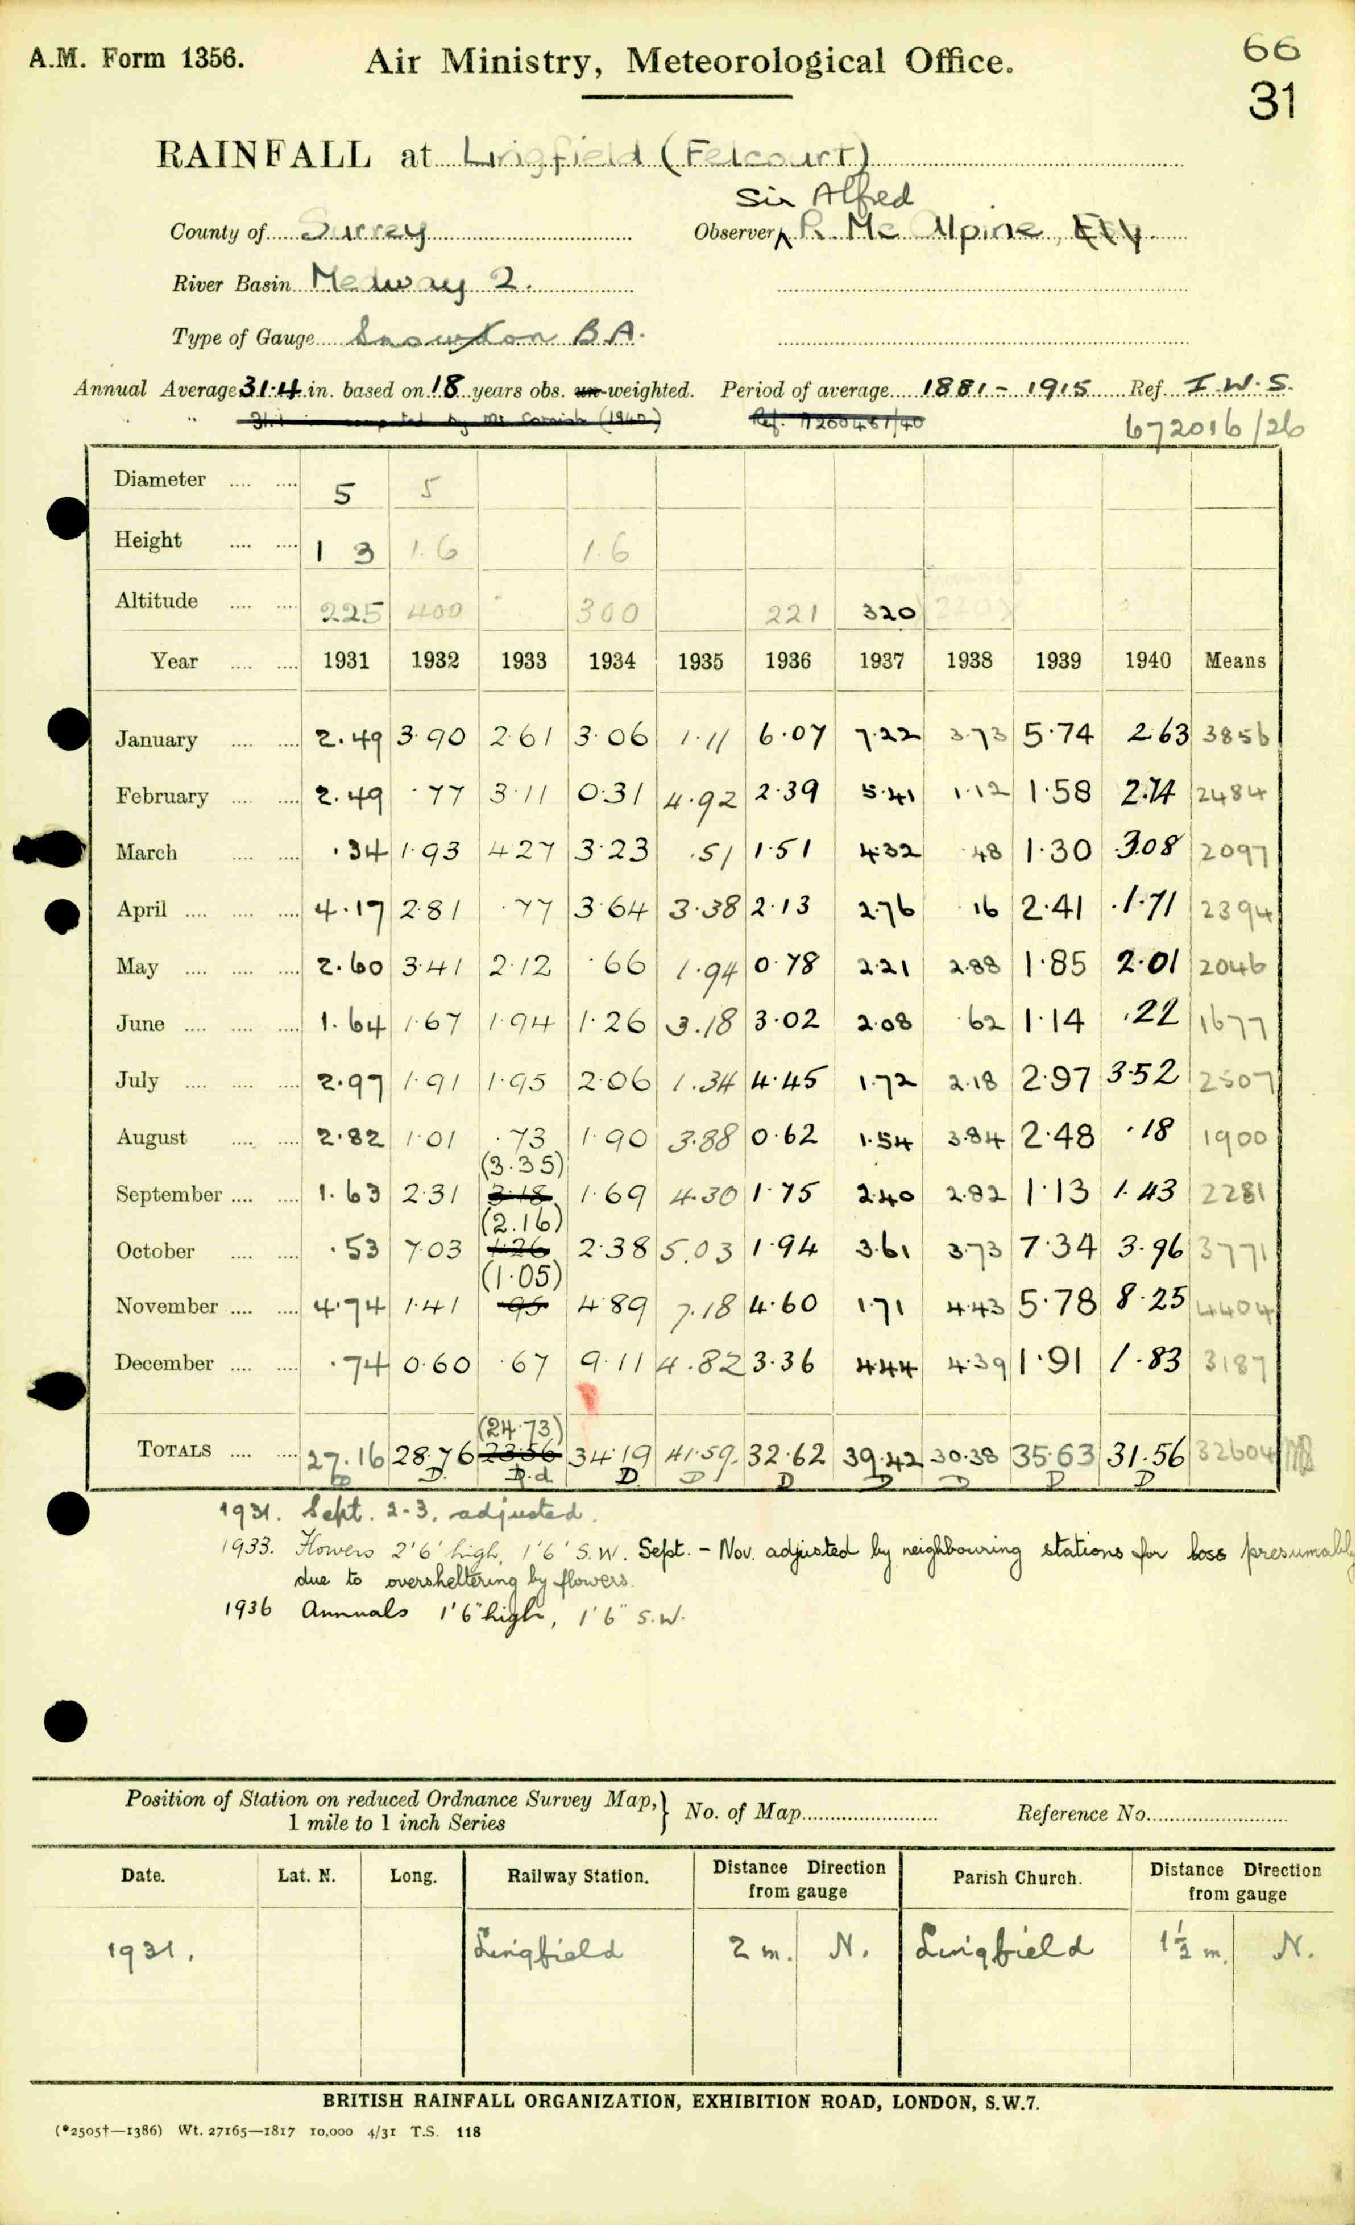 A.M. Form 1356.
Air Ministry, Meteorological Office.
66
31
RAINFALL at Lingfield (Felcourt)
Sir Alfred
County of Surrey Observer R. McAlpine, Esq
River Basin Medway 2.
Type of Gauge Snowdon B A.
Annual Average 31.4 in. based on 18 years obs. un-weighted. Period of average 1881 - 1915 Ref. I.W.S.
" computed by Mr (1940) Ref.
672016/26
Diameter .... .... 5 5
Height .... .... 1 3 1.6 1.6
Altitude .... .... 225 400 300 221 320
Year .... .... 1931 1932 1933 1934 1935 1936 1937 1938 1939 1940 Means
January .... .... 2.49 3.90 2.61 3.06 1.11 6.07 7.22 3.73 5.74 2.63 3856
February .... .... 2.49 .77 3.11 0.31 4.92 2.39 5.41 1.12 1.58 2.74 2484
March .... .... .34 1.93 4.27 3.23 .51 1.51 4.32 .48 1.30 3.08 2097
April .... .... .... 4.17 2.81 .77 3.64 3.38 2.13 2.76 .16 2.41 1.71 2394
May .... .... .... 2.60 3.41 2.12 .66 1.94 0.78 2.21 2.88 1.85 2.01 2046
June .... .... .... 1.64 1.67 1.94 1.26 3.18 3.02 2.08 .62 1.14 .22 1677
July .... .... .... 2.97 1.91 1.95 2.06 1.34 4.45 1.72 2.18 2.97 3.52 2507
August .... .... 2.82 1.01 .73 1.90 3.88 0.62 1.54 3.84 2.48 .18 1900
(3.35)
September .... .... 1.63 2.31 3.18 1.69 4.30 1.75 2.40 2.82 1.13 1.43 2281
(2.16)
October .... .... .53 7.03 1.26 2.38 5.03 1.94 3.61 3.73 7.34 3.96 3771
(1.05)
November .... .... 4.74 1.41 .95 4.89 7.18 4.60 1.71 4.43 5.78 8.25 4404
December .... .... .74 0.60 .67 9.11 4.82 3.36 4.44 4.39 1.91 1.83 3187
(24.73)
TOTALS .... .... 27.16 28.76 23.56 34.19 41.59 32.62 39.42 30.38 35.63 31.56 32604
D D. D.d. D. D D D D D D
1931. Sept. 2-3. adjusted.
1933. Flowers 2'6' high, 1'6' S.W. Sept. - Nov. adjusted by neighbouring stations for loss presumably
due to oversheltering by flowers.
1936 Annuals 1'6" high, 1'6" S.W.
Position of Station on reduced Ordnance Survey Map,} No. of Map Reference No.
1 mile to 1 inch Series
Date. Lat. N. Long. Railway Station. Distance Direction from gauge Parish Church. Distance Direction from gauge
1931. Lingfield 2 m. N. Lingfield 1½ m. N.
BRITISH RAINFALL ORGANIZATION, EXHIBITION ROAD, LONDON, S.W.7.
(*2505†—1386) Wt. 27165—1817 10,000 4/31 T.S. 118